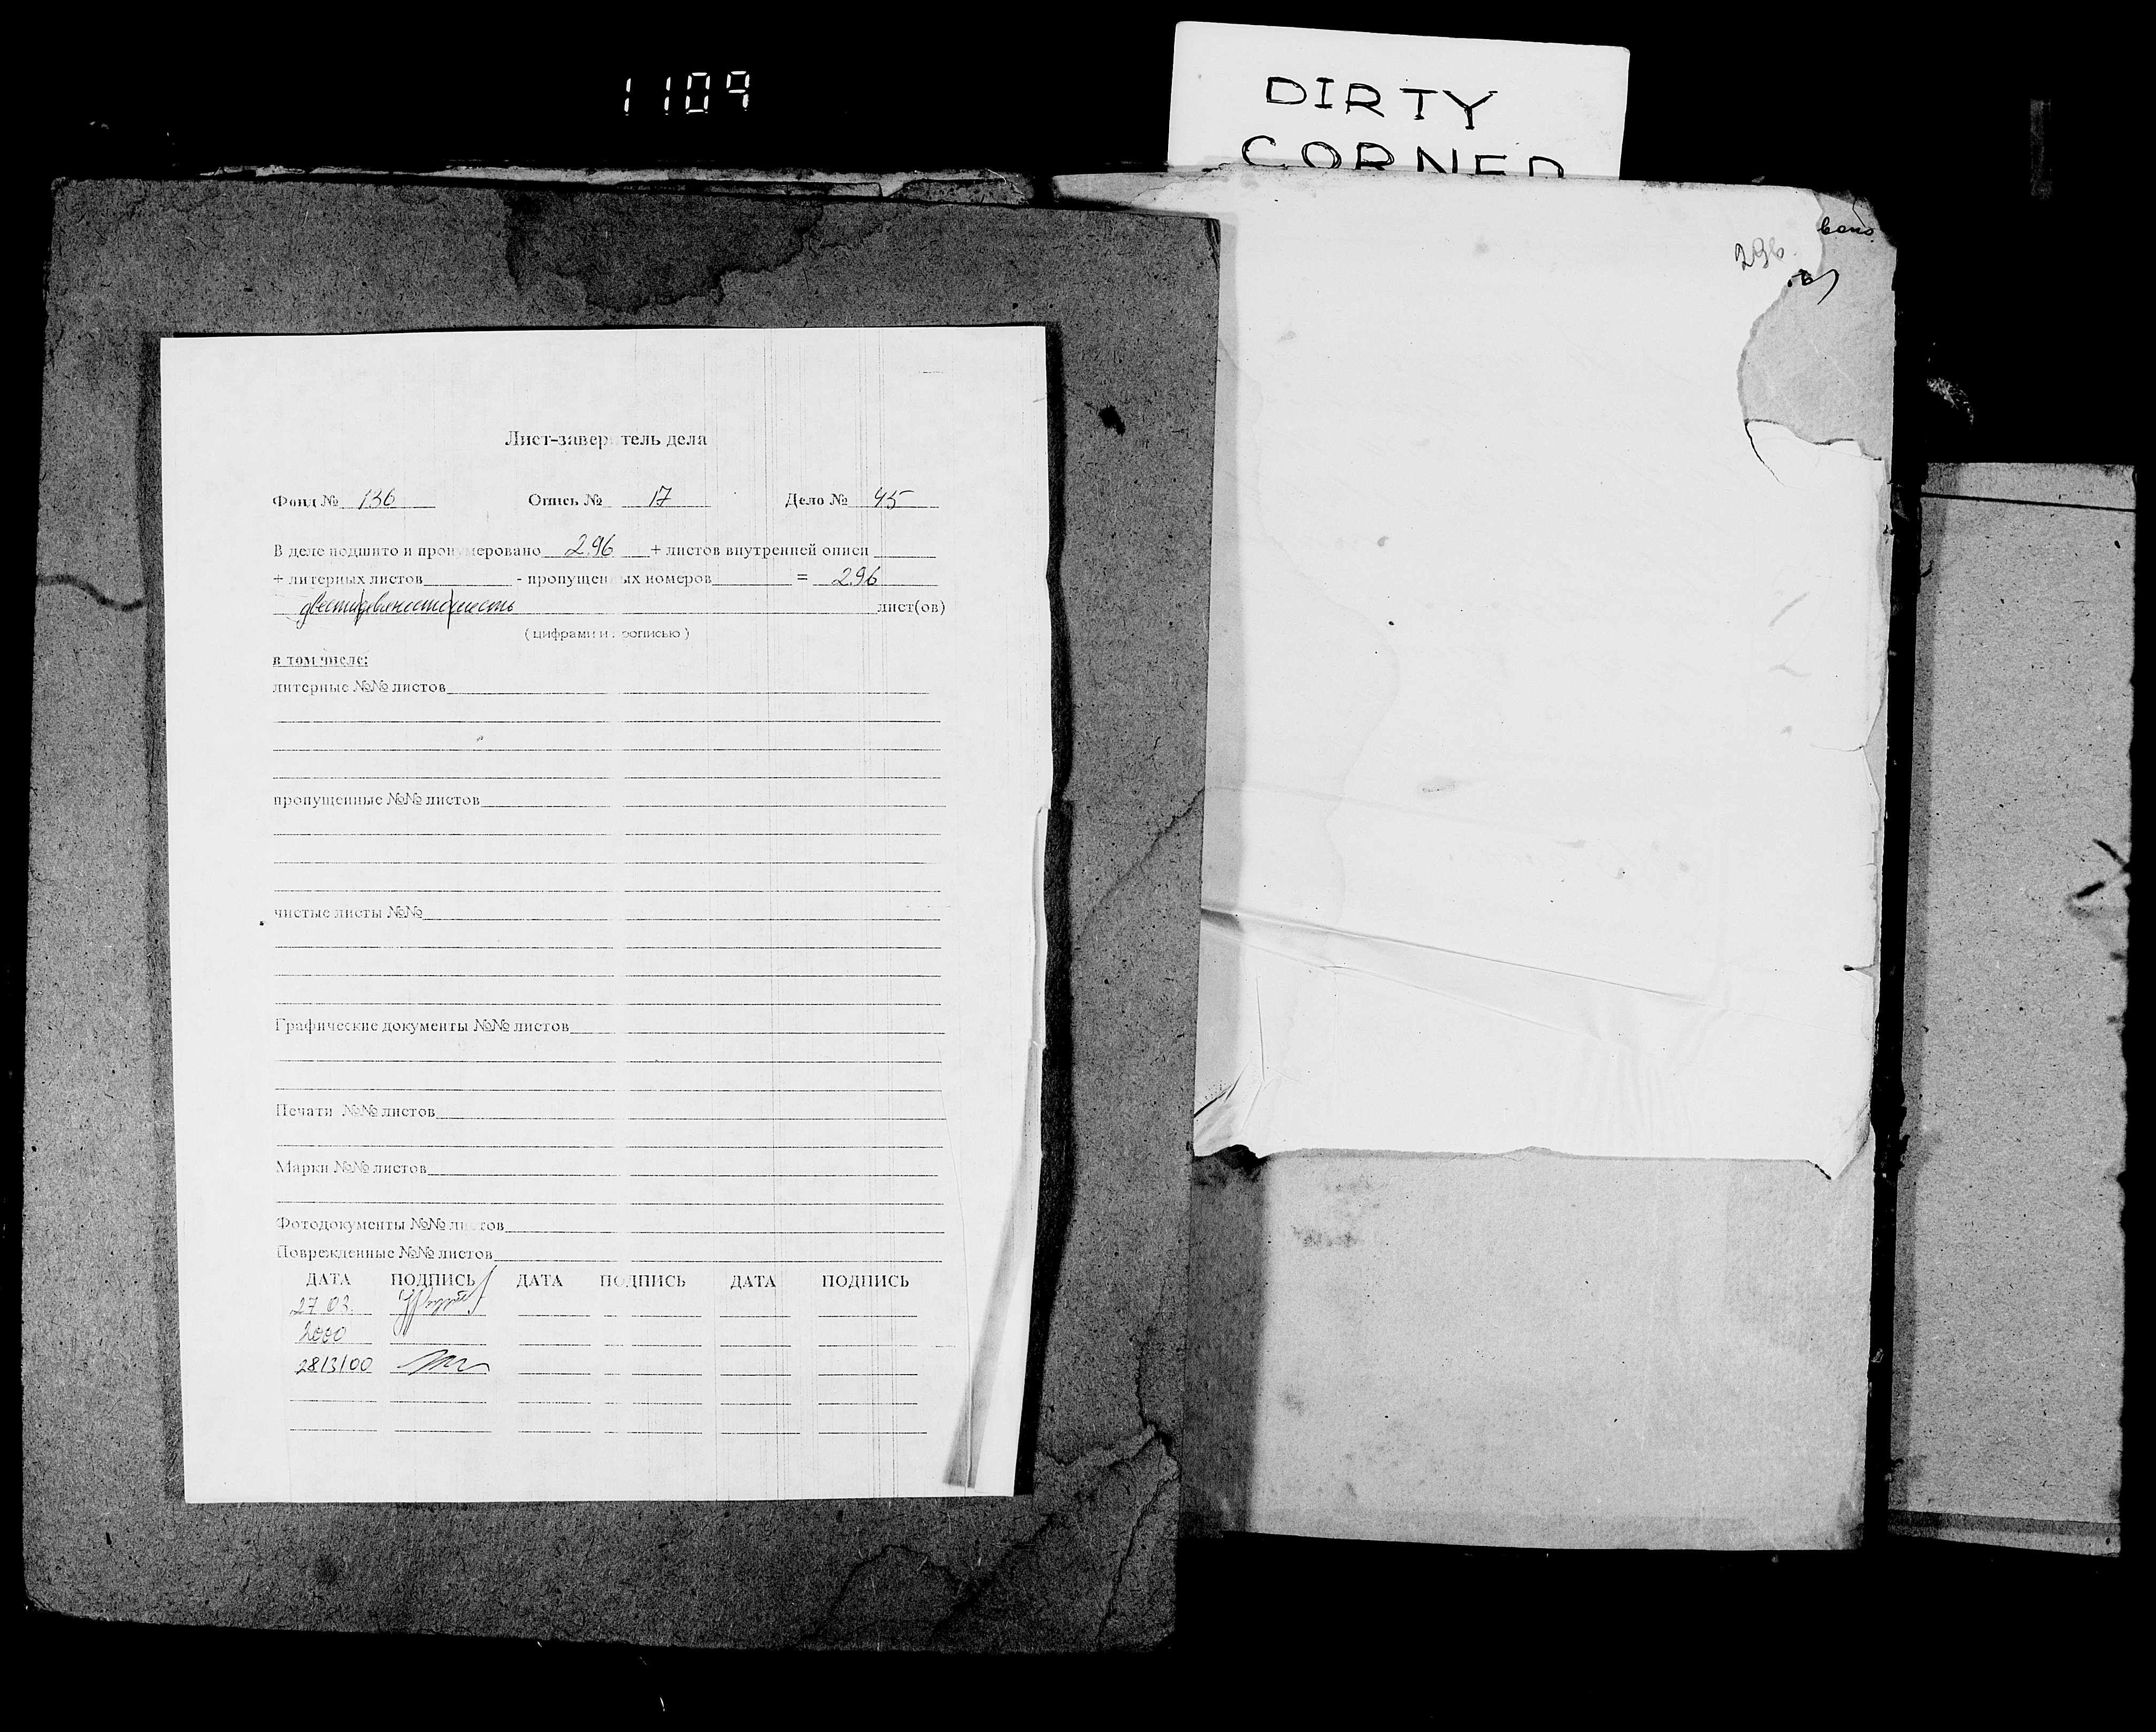 1109
DIRTY
CORNER
296.
Лист-заверитель дела
Фонд № 136 Опись № 17 Дело № 45
В деле подшито и пронумеровано 296 + листов внутренней описи
+ литерных листов - пропущенных номеров = 296
двести девяносто шесть лист(ов)
( цифрами и прописью )
в том числе:
литерные №№ листов
пропущенные №№ листов
чистые листы №№
Графические документы №№ листов
Печати №№ листов
Марки №№ листов
Фотодокументы №№ листов
Поврежденные №№ листов
ДАТА ПОДПИСЬ ДАТА ПОДПИСЬ ДАТА ПОДПИСЬ
27 03.
2000
28/3/00